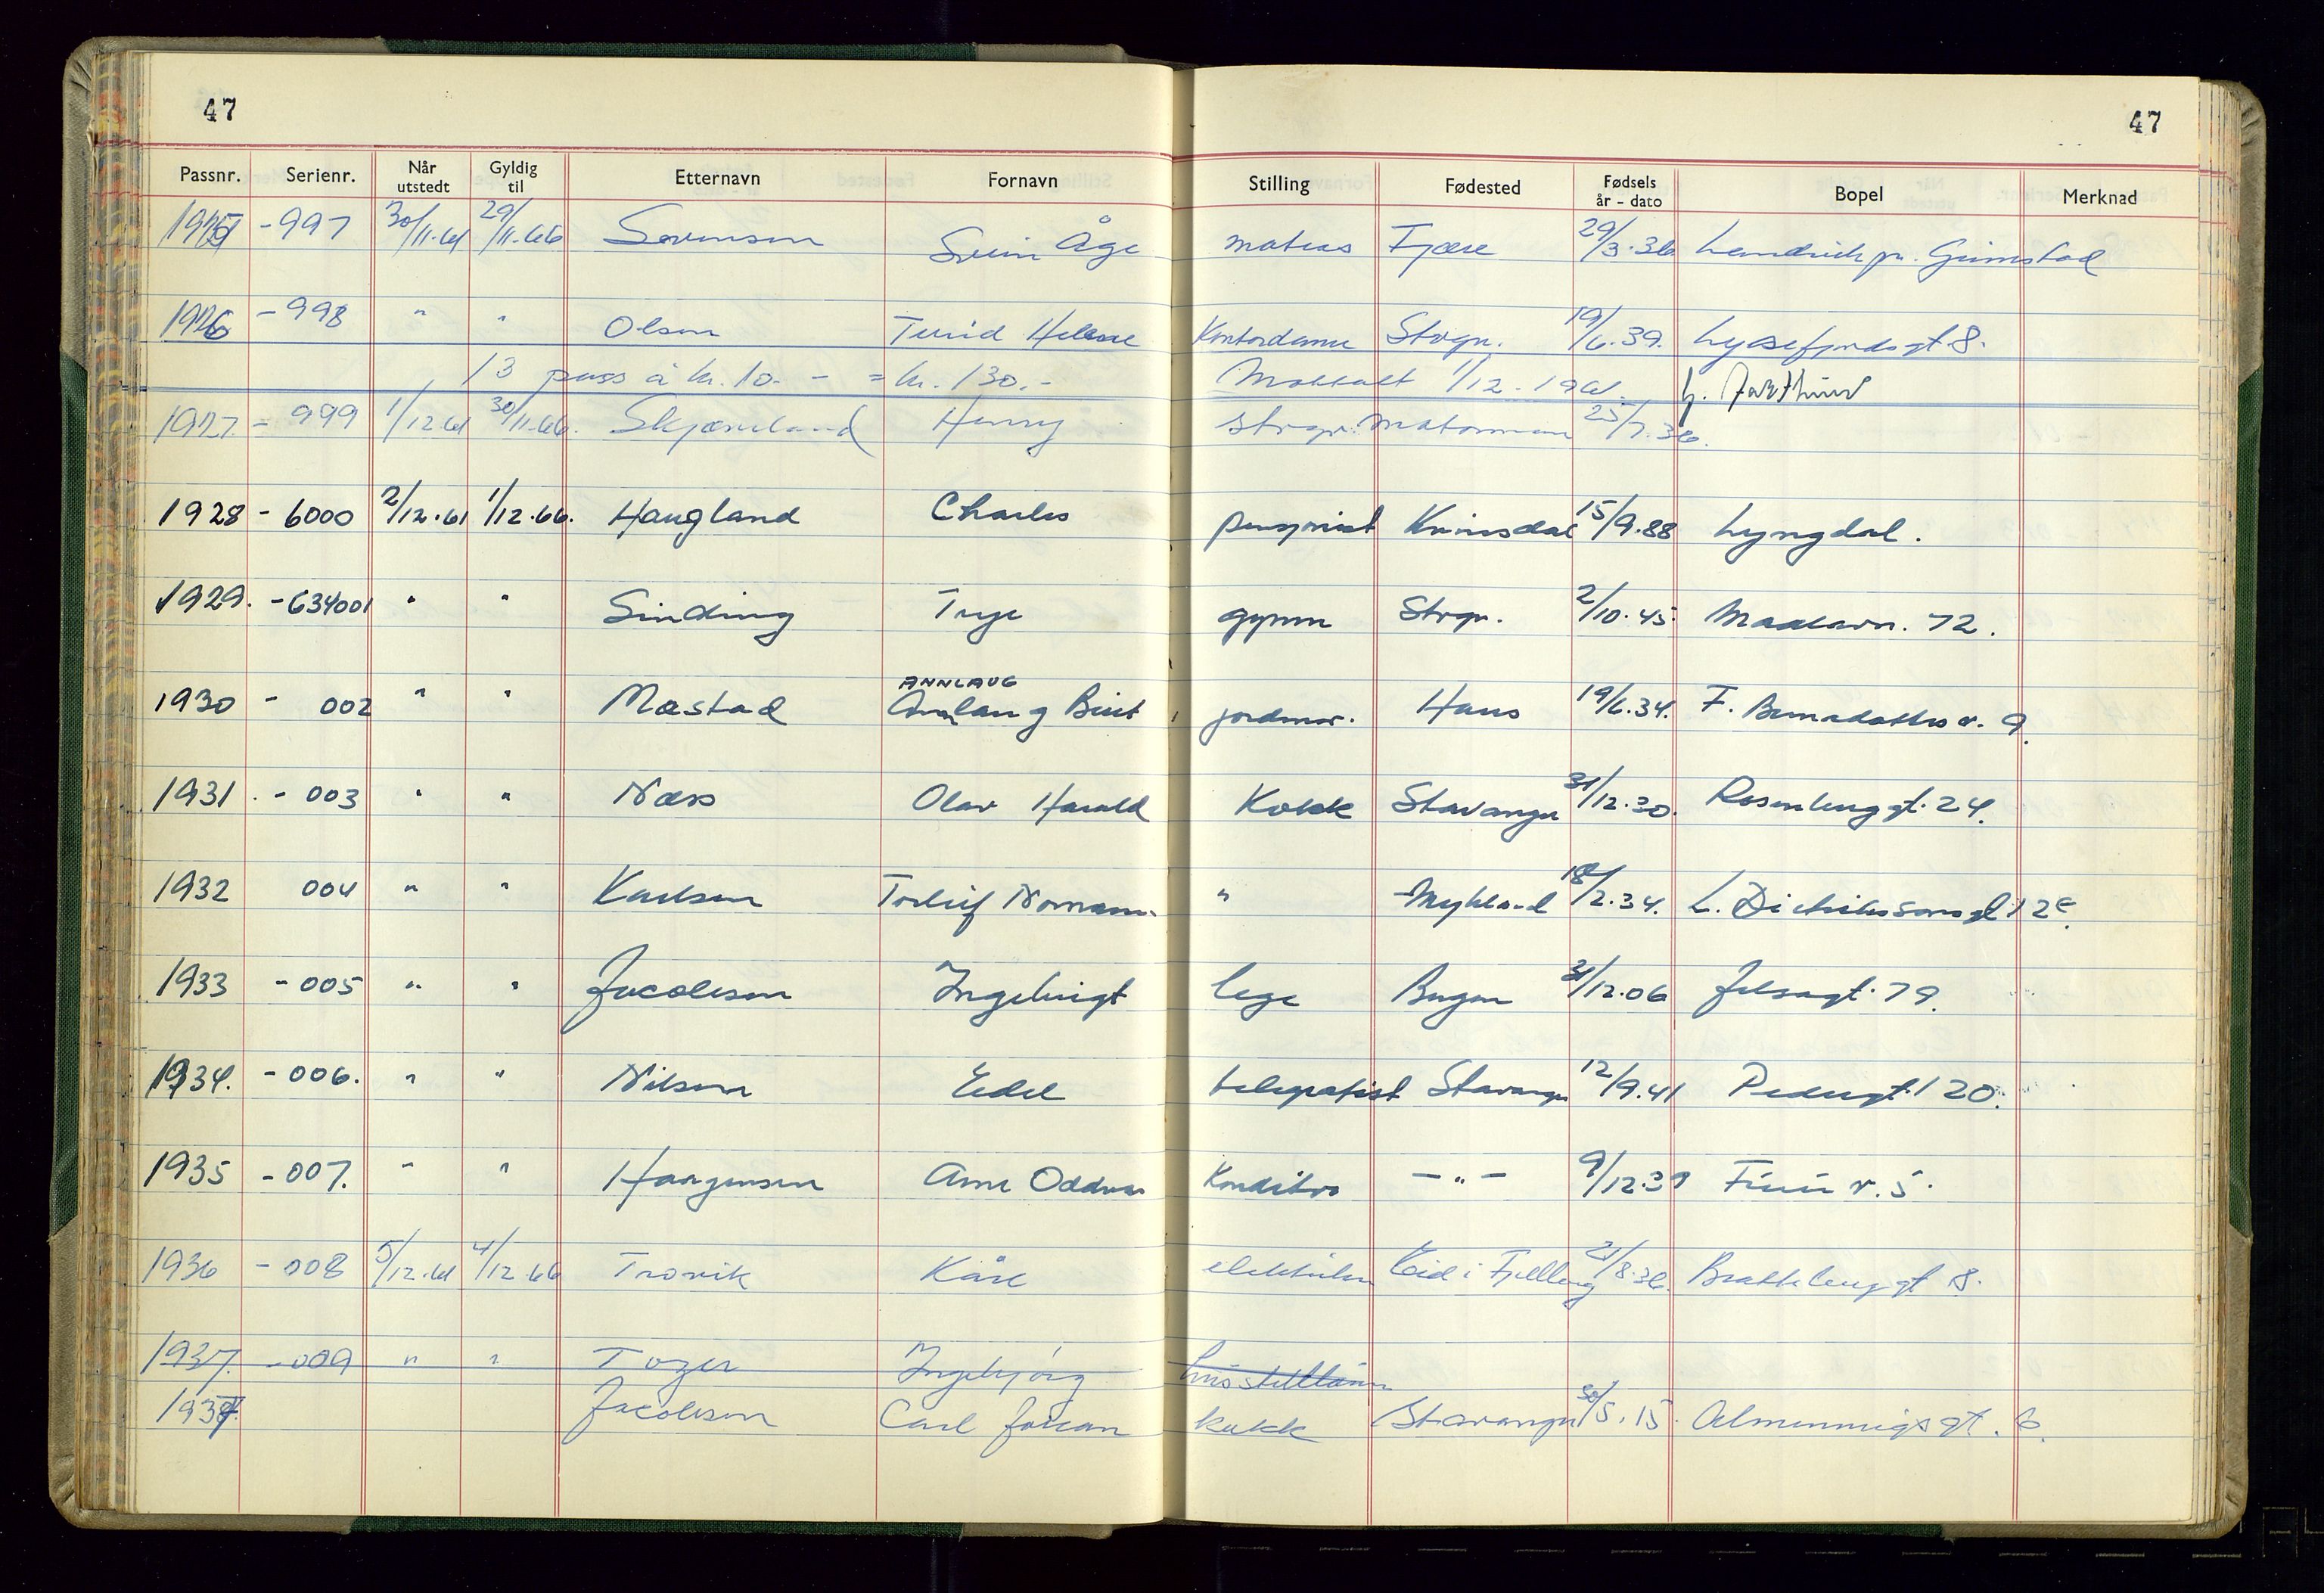 47 47
Passnr. Serienr. Når utstedt Gyldig til Etternavn Fornavn Stilling Fødested Fødsels år - dato Bopel Merknad
1925 - 997 30/11.61 29/11.66 Sørensen Svein Åge matros Fjære 29/3.36 Landvik pr. Grimstad
1926 - 998 " " Olsen Turid Helene Kontordame Stvgr. 19/6.39. Lysefjordsgt 8.
13 pass à kr. 10.- = kr. 130.- Mottatt 1/12.1961
1927 - 999 1/12.61 30/11.66. Skjæveland Henry Stvgr. Matorman 25/7.36.
1928 - 6000 2/12.61 1/12.66. Haugland Charles pensjonist Kvinesdal 15/9.88 Lyngdal.
1929. - 634001 " " Sinding Trye gymn Stvgr. 2/10.45. Madlavn. 72.
1930 - 002 " " Mæstad ANNLAUG Annlaug Birit jordmor. Haus 19/6.34. F. Bernadottes v. 9.
1931. - 003 " " Næss Olav Harald Kokk Stavanger 31/12.30. Rosenberggt. 24.
1932 004 " " Karlsen Torleif Normann " Mykland 18/2.34. L. Dietrichsonsgt 12c.
1933 - 005 " " Jacobsen Ingebrigt lege Bergen 31/12.06 Jelsagt. 79.
1934. - 006. " " Nilsen Edel telegrafist Stavanger 12/9.41 Pedersgt. 120.
1935 - 007. " " Haagensen Arne Oddvar Konditor - " - 9/12.39 Furu v. 5.
1936 - 008 5/12.61 4/12.66 Trovik Kåre elektriker Eid i Fjelberg 21/8.36. Brattebergt 8.
1937. - 009 " " Tozer Ingebjørg husstelllær
1937. Jacobsen Carl Johan kokk Stavanger 30/5.15. Almenningsgt. 6.